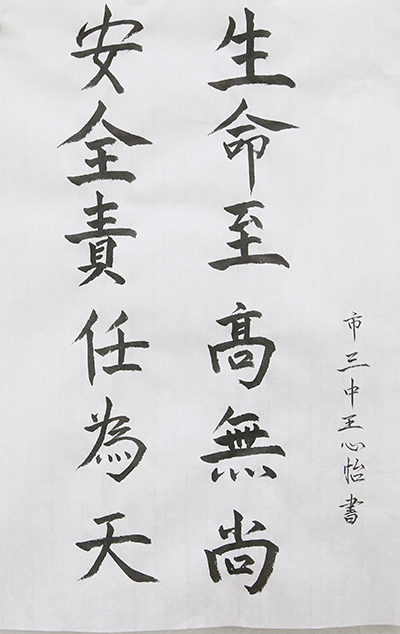 生命至髙無尚
安全責任為天
市三中王心怡書